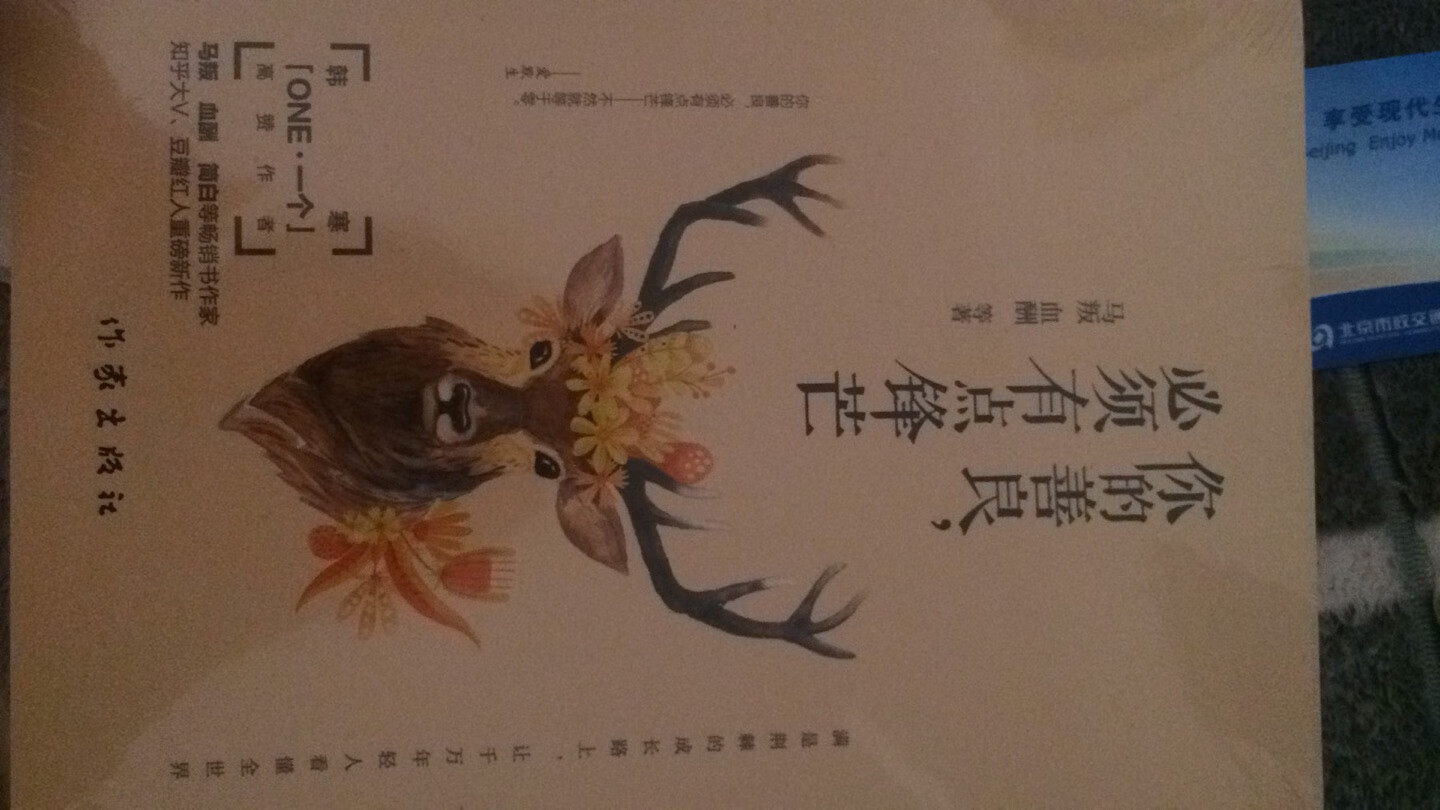 满是荆棘的成长路上，让千万年轻人看懂全世界
你的善良，
必须有点锋芒
马叛 血酬 等著
你的善良，必须有点锋芒——不然就等于零。
——爱默生
韩寒
「ONE·一个」
高赞作者
马叛 血酬 简白等畅销书作家
知乎大V、豆瓣红人重磅新作
作家出版社
享受现代
eijing Enjoy
北京市政交通